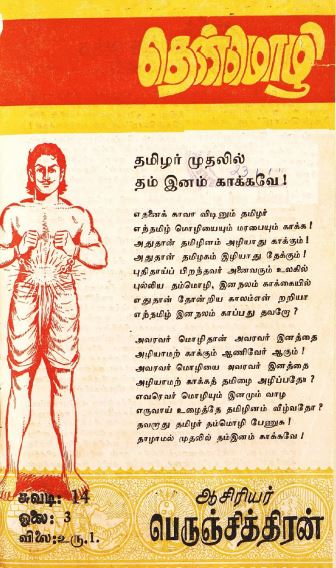 தென்மொழி
தமிழர் முதலில்
தம் இனம் காக்கவே!
எதனைக் காவா விடினும் தமிழர்
எந்தமிழ் மொழியையும் மரபையும் காக்க!
அதுதான் தமிழினம் அழியாது காக்கும்!
அதுதான் தமிழகம் இழியாது தேக்கும்!
புதிதாய்ப் பிறந்தவர் அனைவரும் உலகில்
புல்லிய தம்மொழி, இனநலம் காக்கையில்
எதுதான் தோன்றிய காலம்என் றறியா
எந்தமிழ் இனநலம் காப்பது தவறோ?
அவரவர் மொழிதான் அவரவர் இனத்தை
அழியாமற் காக்கும் ஆணிவேர் ஆகும்!
அவரவர் மொழியை அவரவர் இனத்தை
அழியாமற் காக்கத் தமிழை அழிப்பதோ?
எவரெவர் மொழியும் இனமும் வாழ
எருவாய் உழைத்தே தமிழினம் வீழ்வதோ?
தவறாது தமிழர் தம்மொழி பேணுக!
தாழாமல் முதலில் தம்இனம் காக்கவே!
சுவடி: 14
ஓலை: 3
விலை:உரு.1.
ஆசிரியர்
பெருஞ்சித்திரன்